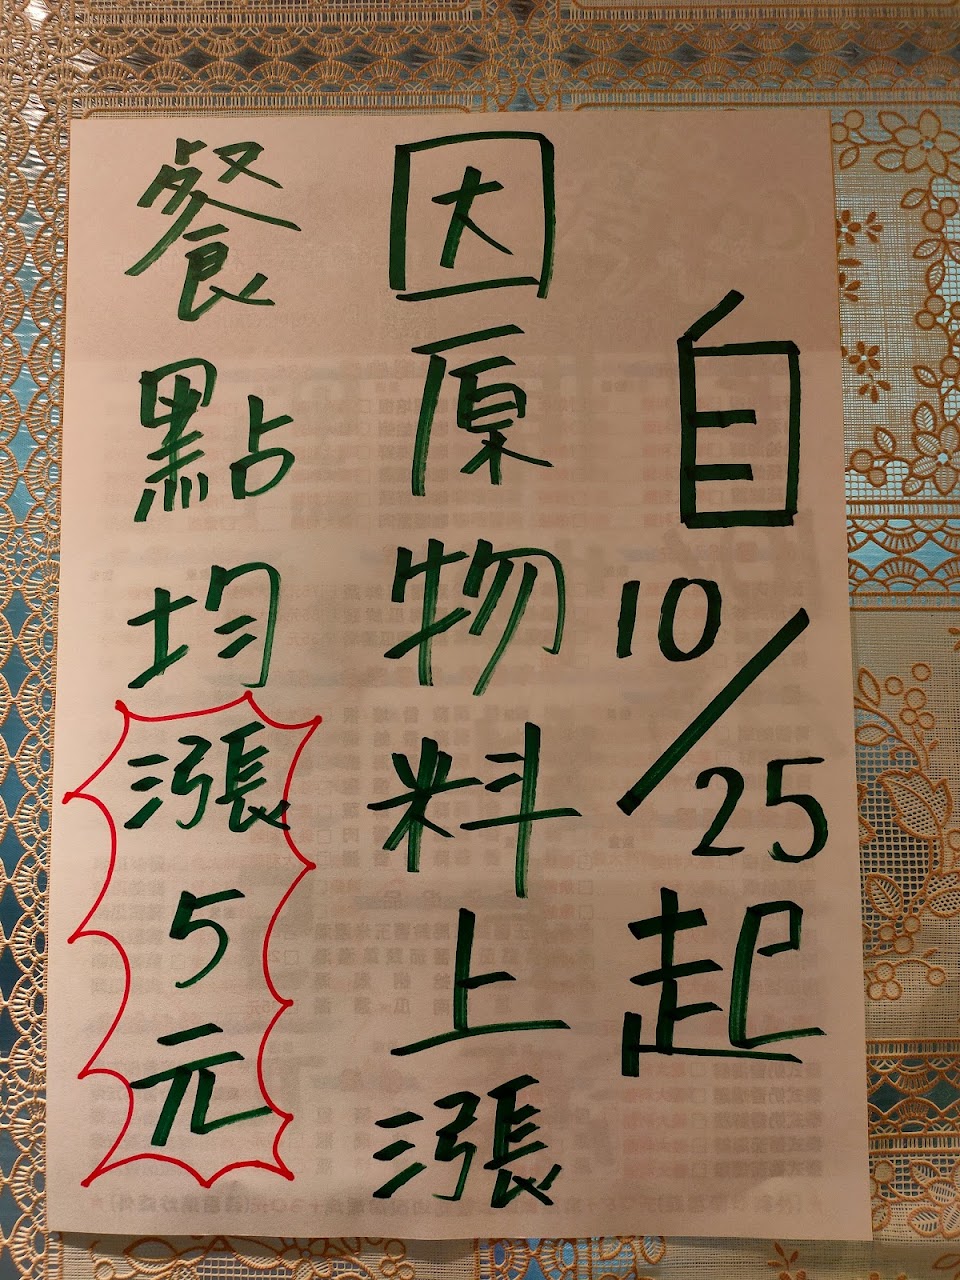 自10/25起
因原物料上漲
餐點均漲5元